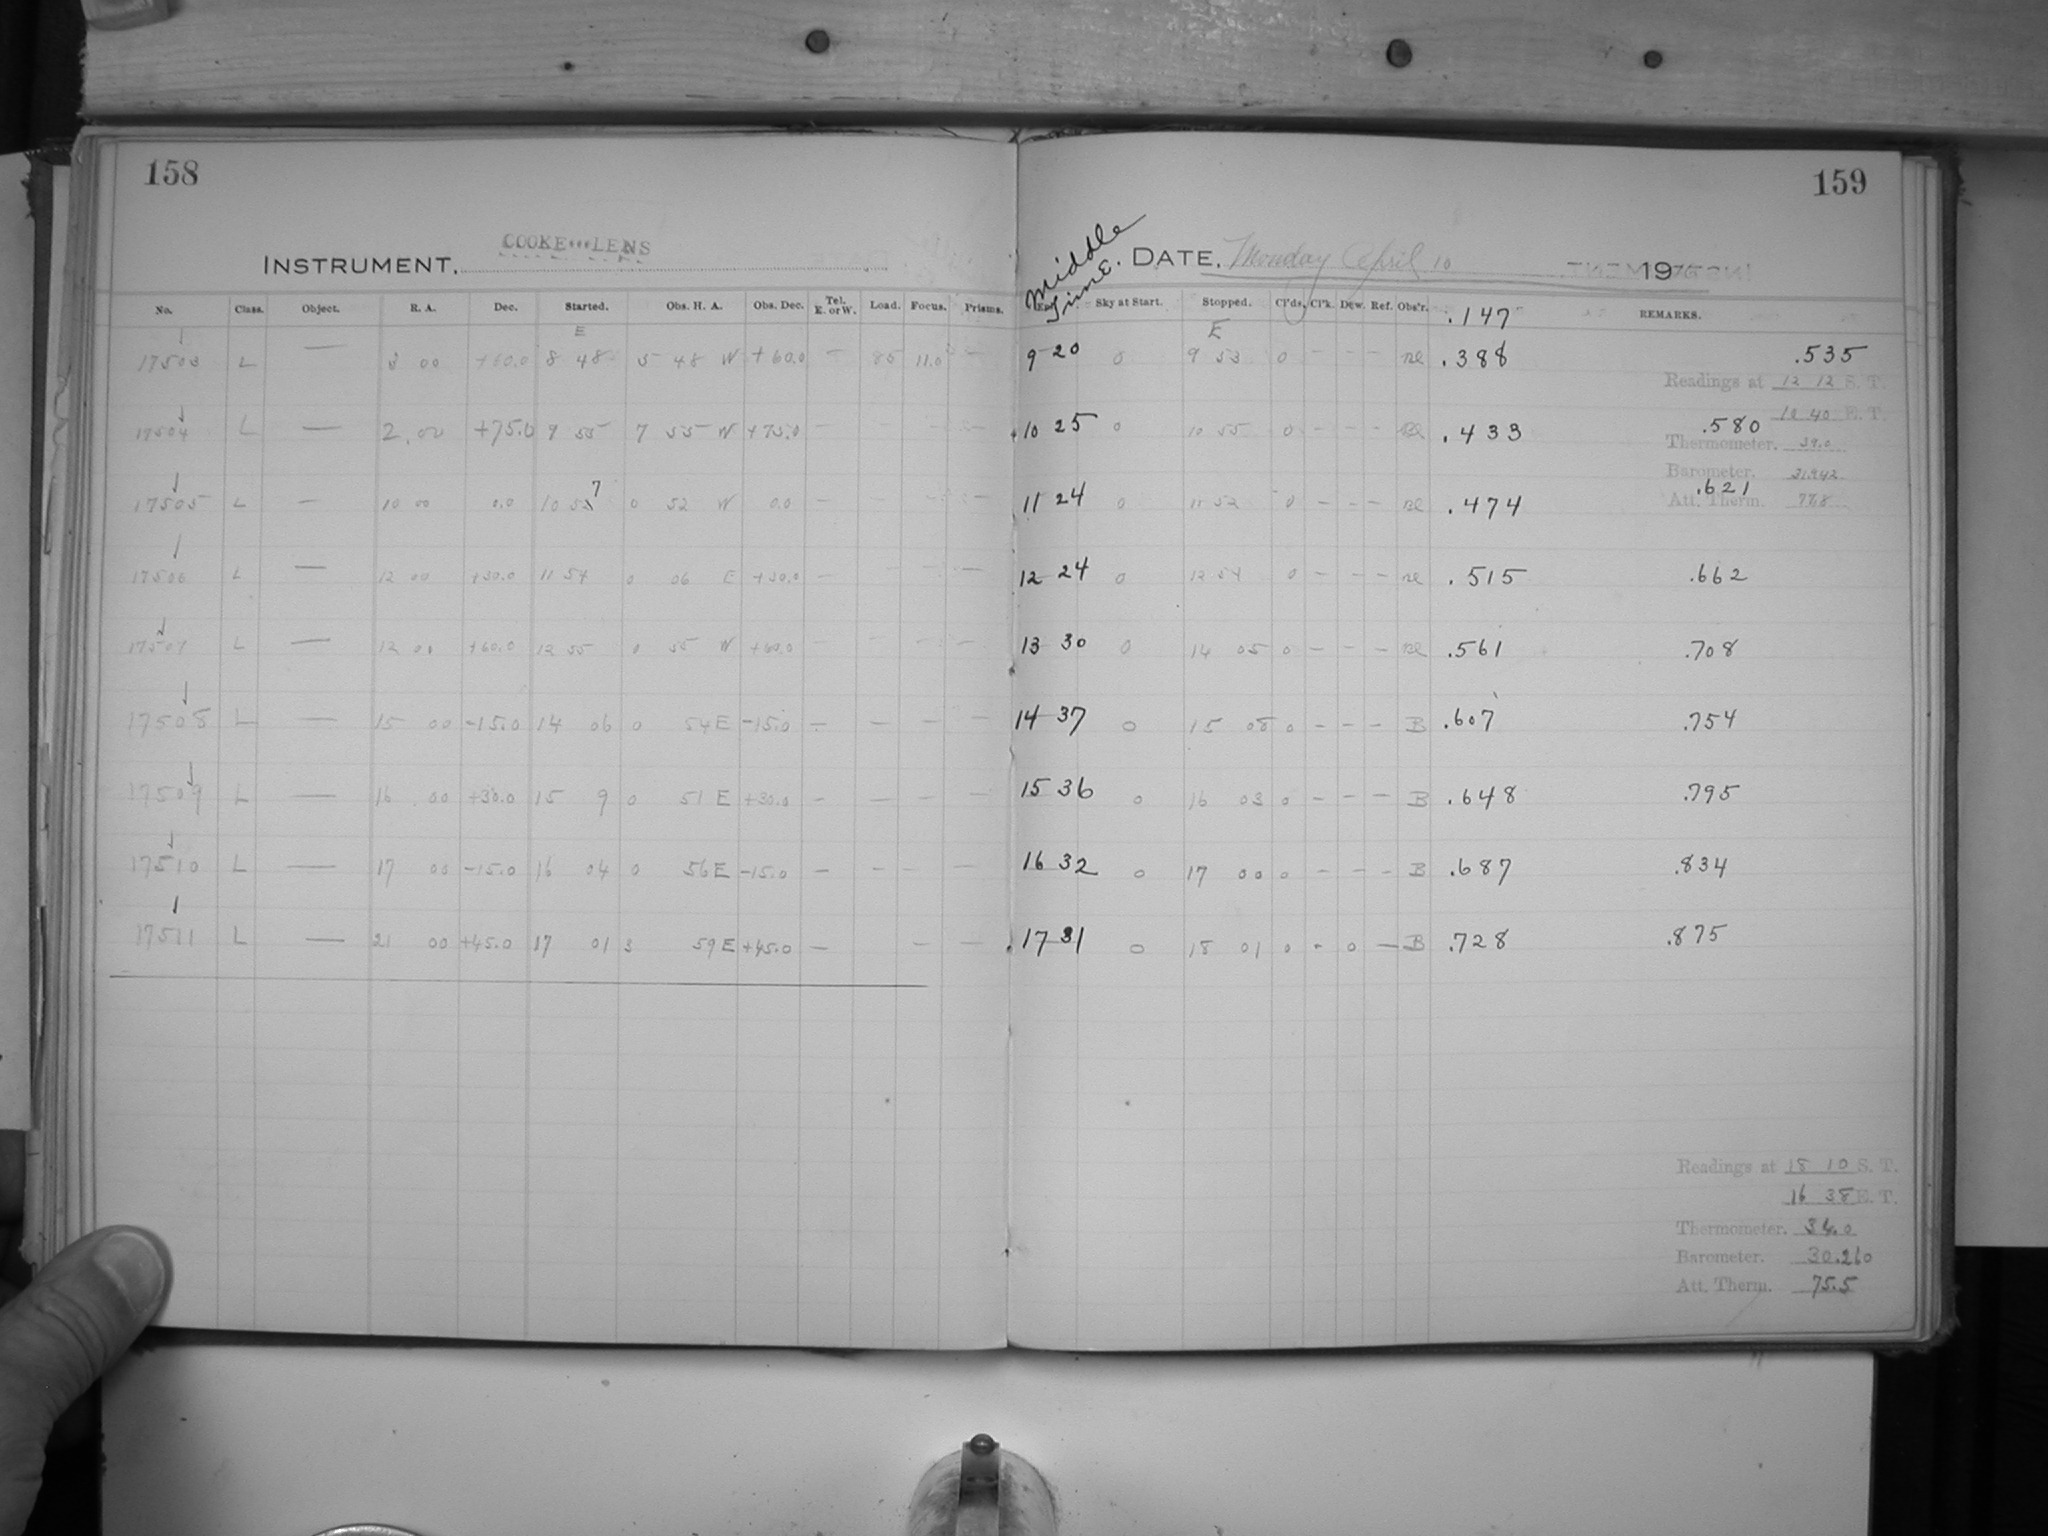 158
159
COOKE LENS
INSTRUMENT.
Middle Time.
DATE. Monday April 10 19
No. Class. Object. R. A. Dec. Started. Obs. H. A. Obs. Dec. Tel. E. or W. Load. Focus. Prisms. Sky at Start. Stopped. Cl'ds. Cl'k. Dew. Ref. Obs'r. .147 REMARKS.
E E
17503 L — 3 00 +60.0 8 48 5 48 W +60.0 — 85 11.0 — 9 20 0 9 53 0 - - - .388 .535
Readings at 12 12 S. T.
10 40 E. T.
17504 L — 2 00 +75.0 9 55 7 55 W +75.0 — 10 25 0 10 55 0 - - - .433 .580
Thermometer. 39.0
Barometer.
17505 L — 10 00 0.0 10 57 0 52 W 0.0 — 11 24 0 11 52 0 - - - .474 .621
Att. Therm.
17506 L — 12 00 +30.0 11 54 0 06 E +30.0 — 12 24 0 12 54 0 - - - .515 .662
17507 L — 12 00 +60.0 12 55 0 55 W +60.0 — 13 30 0 14 05 0 - - - .561 .708
17508 L — 15 00 -15.0 14 06 0 54 E -15.0 — — — — 14 37 0 15 08 0 - - - B .607 .754
17509 L — 16 00 +30.0 15 9 0 51 E +30.0 — — — — 15 36 0 16 03 0 - - - B .648 .795
17510 L — 17 00 -15.0 16 04 0 56 E -15.0 — — — — 16 32 0 17 00 0 - - - B .687 .834
17511 L — 21 00 +45.0 17 01 3 59 E +45.0 — — — 17 31 0 18 01 0 - 0 — B .728 .875
Readings at 18 10 S. T.
16 38 E. T.
Thermometer. 34.0
Barometer. 30.260
Att. Therm. 75.5